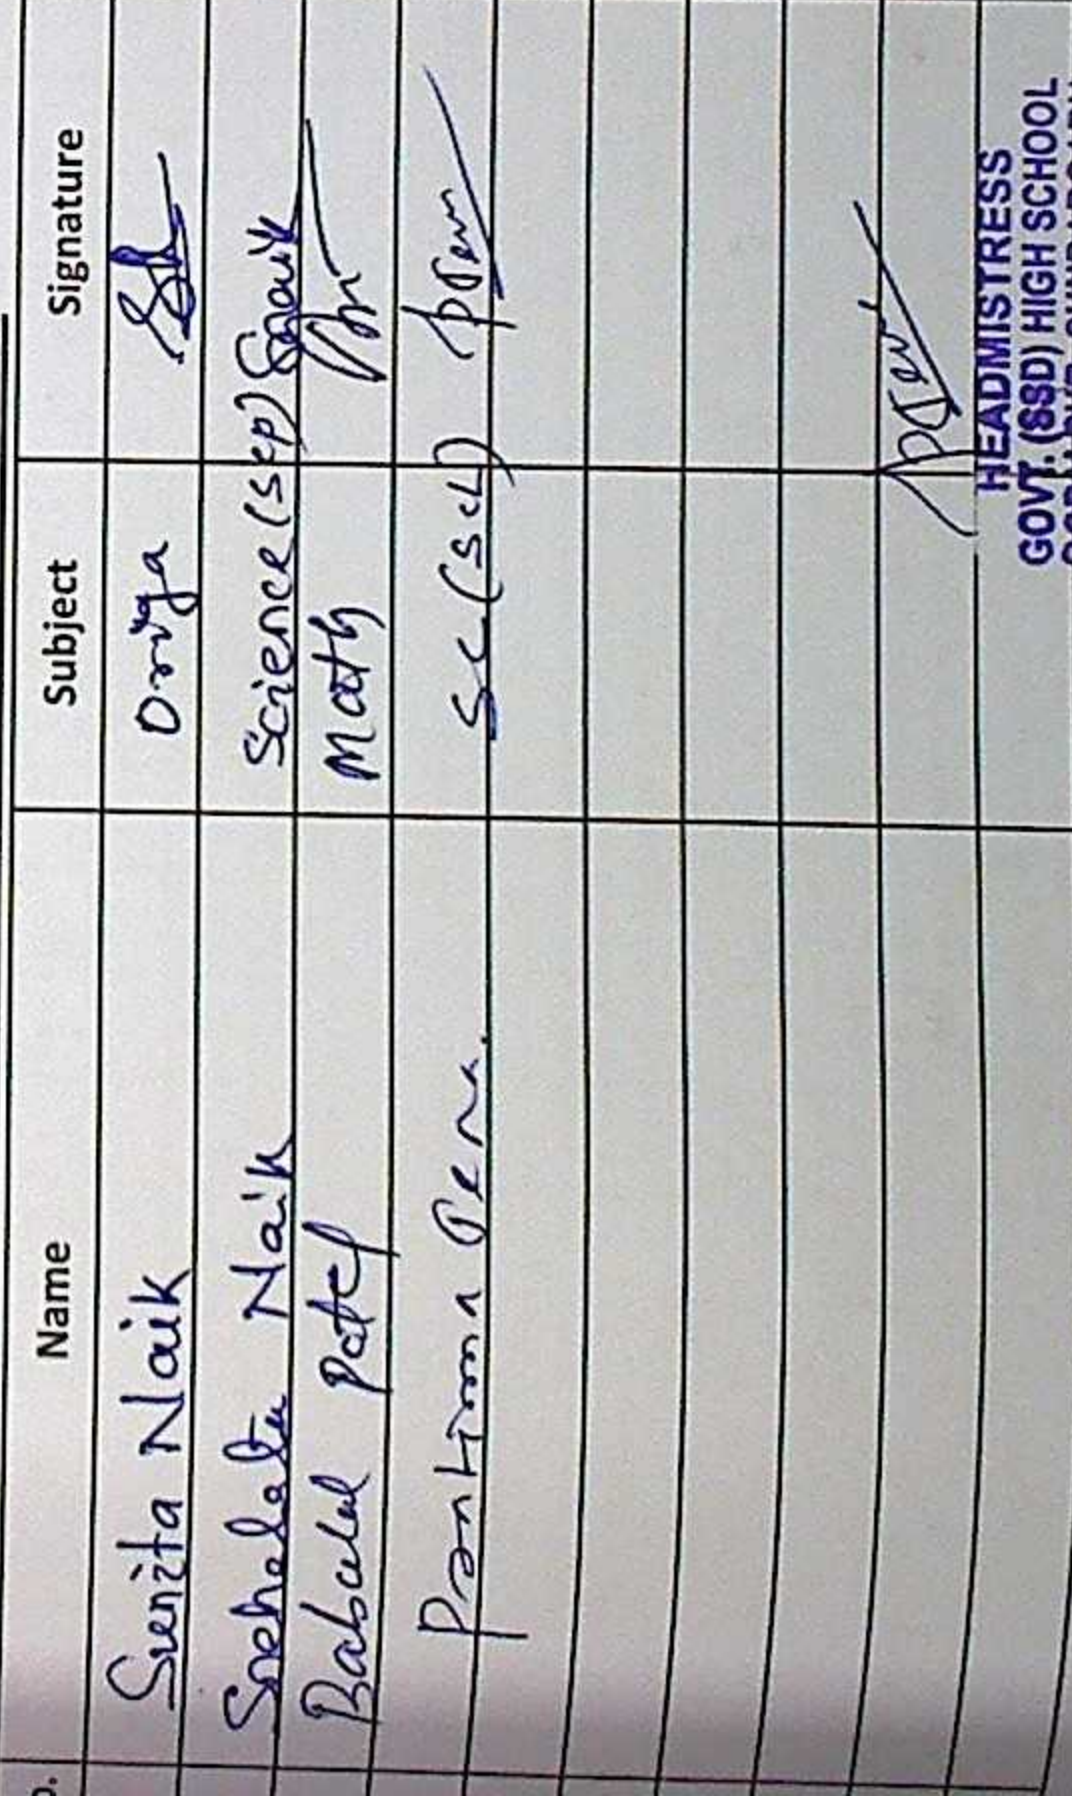 o. Name Subject Signature
Sunita Naik Oriya
Snehalata Naik Science (scp) Snaik
Babulal Patel Math
Pratima Jena. Sc. (scz) PJena
PJena
HEADMISTRESS
GOVT. (SSD) HIGH SCHOOL